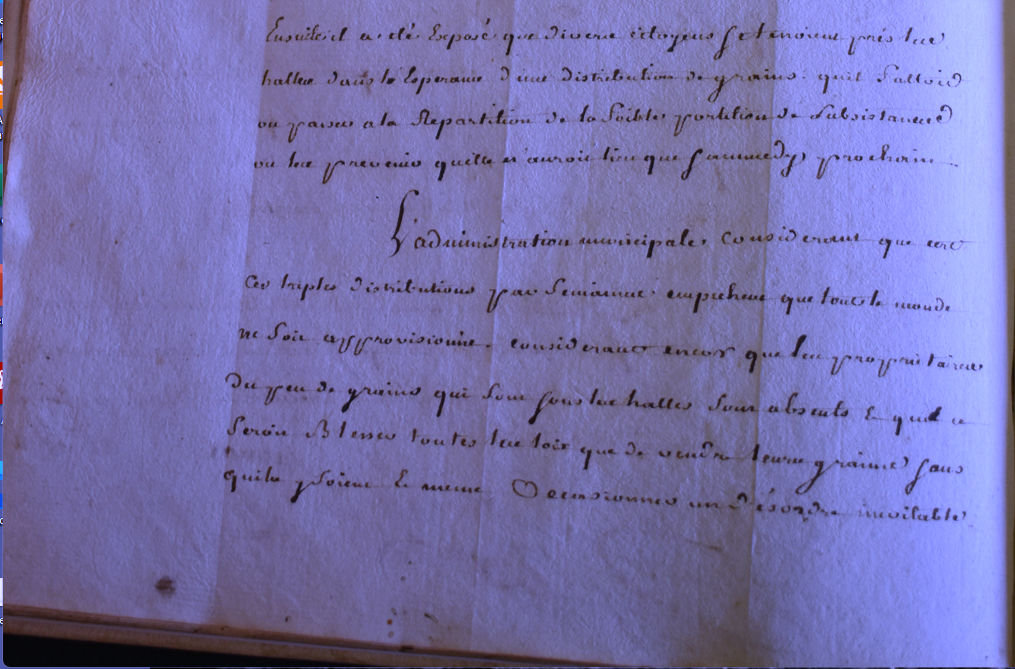 Ensuite il a été Exposé que divers citoyens se tenoient prés les
halles dans l'Esperance d'une distribution de grains. quil falloid
ou passer a la Repartition de la foible portition de subsistances
ou les prevenir quelle n'auroit lieu que sammedy prochain
L'administration municipale, Considerant que
ces triples distributions par semaine. empechent que tout le monde
ne soit approvisionné. considerant encor que les proprietaires
Du peu de grains qui sont sous les halles sont absents & que ce
seroit Blesser toutes les loix que de vendre leurs grains sans
quils y soient & meme Occasionner un désordre inevitable